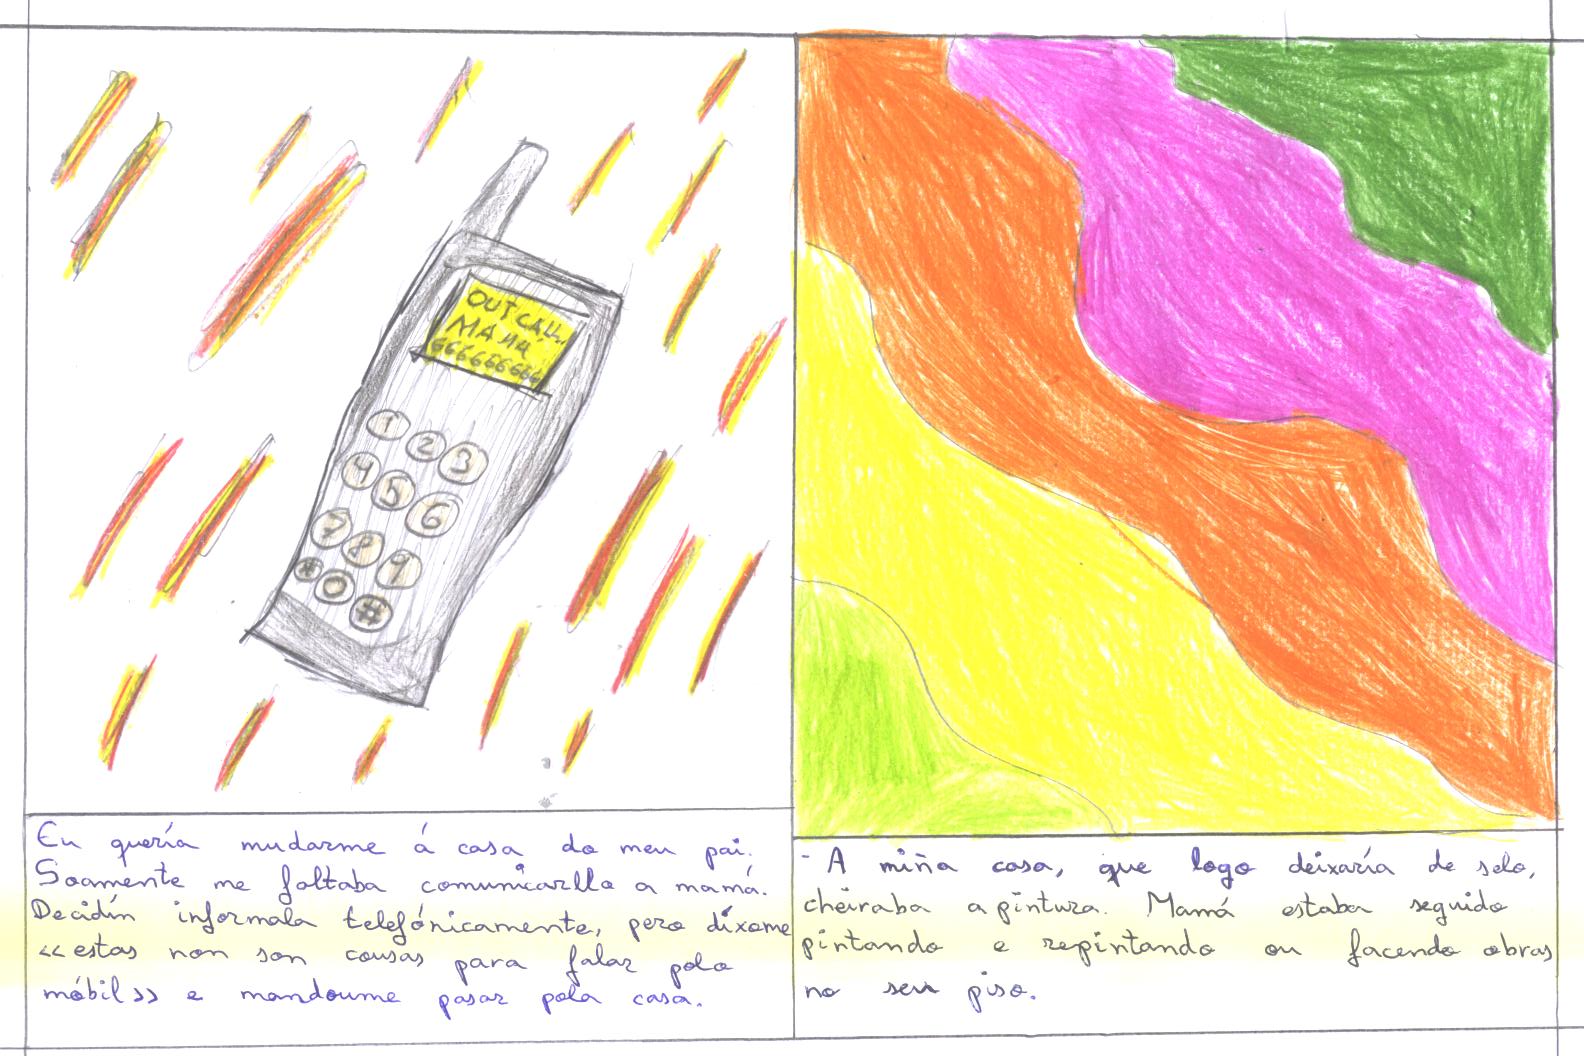 OUT CALL...
MAMA
666666666
1 2 3
4 5 6
7 8 9
* 0 #
Eu quería mudarme á casa do meu pai.
Soamente me faltaba comunicarlla a mamá.
Decidín informala telefónicamente, pero díxome
<<estas non son cousas para falar polo
móbil>> e mandoume pasar pola casa.
- A miña casa, que logo deixaría de selo,
cheiraba a pintura. Mamá estaba seguido
pintando e repintando ou facendo obras
no seu piso.